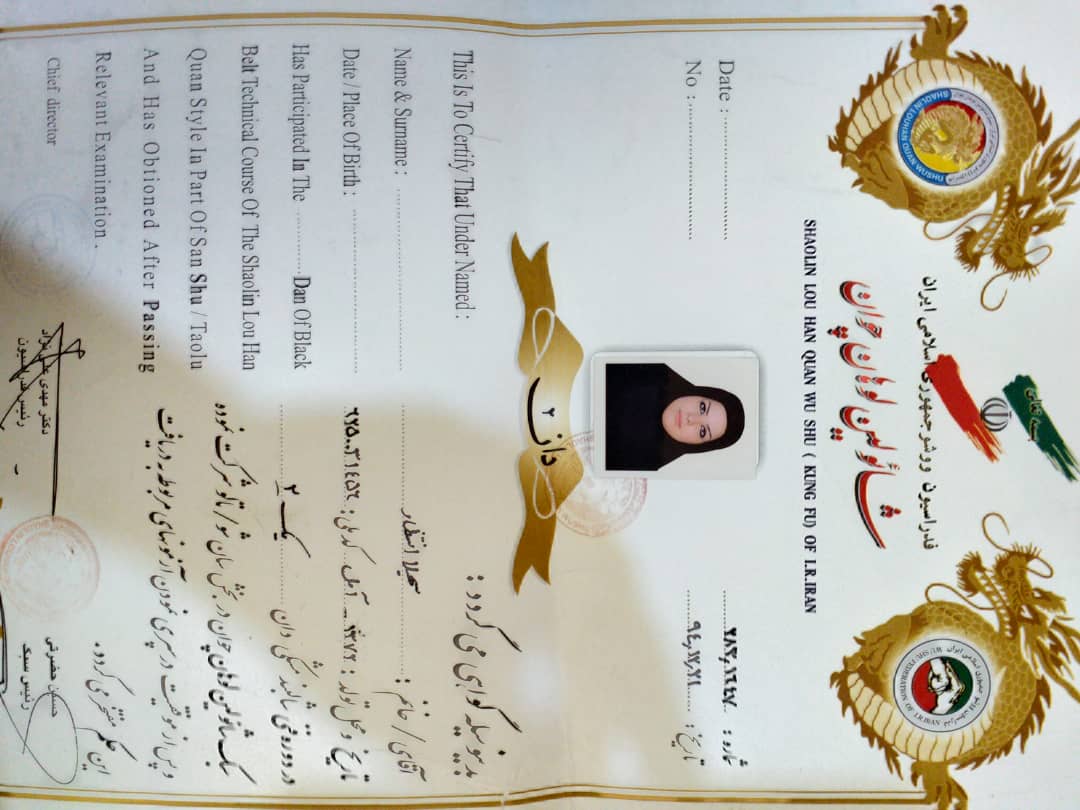 بسمه تعالی
فدراسیون ووشو جمهوری اسلامی ایران
شائولین لوهان چوان
SHAOLIN LOU HAN QUAN WU SHU ( KUNG FU) OF I.R.IRAN
SHAOLIN LOUHAN QUAN WUSHU
Date : ........................
No : ........................
شماره :
تاریخ :
دان ۲
This Is To Certify That Under Named :
Name & Surname : ........................
Date / Place Of Birth : ........................
Has Participated In The ............ Dan Of Black
Belt Technical Course Of The Shaolin Lou Han
Quan Style In Part Of San Shu / Taolu
And Has Obtioned After Passing
Relevant Examination .
Chief director
بدینوسیله گواهی می گردد :
آقای / خانم : سهیلا انتظار
تاریخ و محل تولد : ۱۳۷۲ - آمل
در دوره فنی کمربند مشکی دان یک ۲
سبک شائولین لوهان چوان در بخش سان شو / تالو شرکت نموده
و پس از موفقیت در سپری نمودن آزمونهای مربوطه به دریافت
این حکم مفتخر می گردد.
دکتر مهدی علی نژاد
رئیس فدراسیون
حسین حضرتی
رئیس سبک